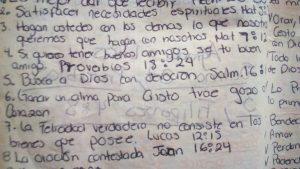 2. Satisfacer necesidades espirituales Mat
3. Hagan ustedes con los demas lo que nosotros
queremos que hagan con nosotros Mat 7:12
4. Si quieres tener buenos amigos se tu buen
amigo Proverbios 18:24
5. Busca a Dios con devoción Salm. 16:
6. Ganar un alma para Cristo trae gozo al
Corazon
7. La Felicidad verdadera no consiste en los
bienes que posee. Lucas 12:15
8 La oración contestada Joan 16:24
Orar,
Todo l
de D
Lo P
lo prim
Bendec
Amor
Redend